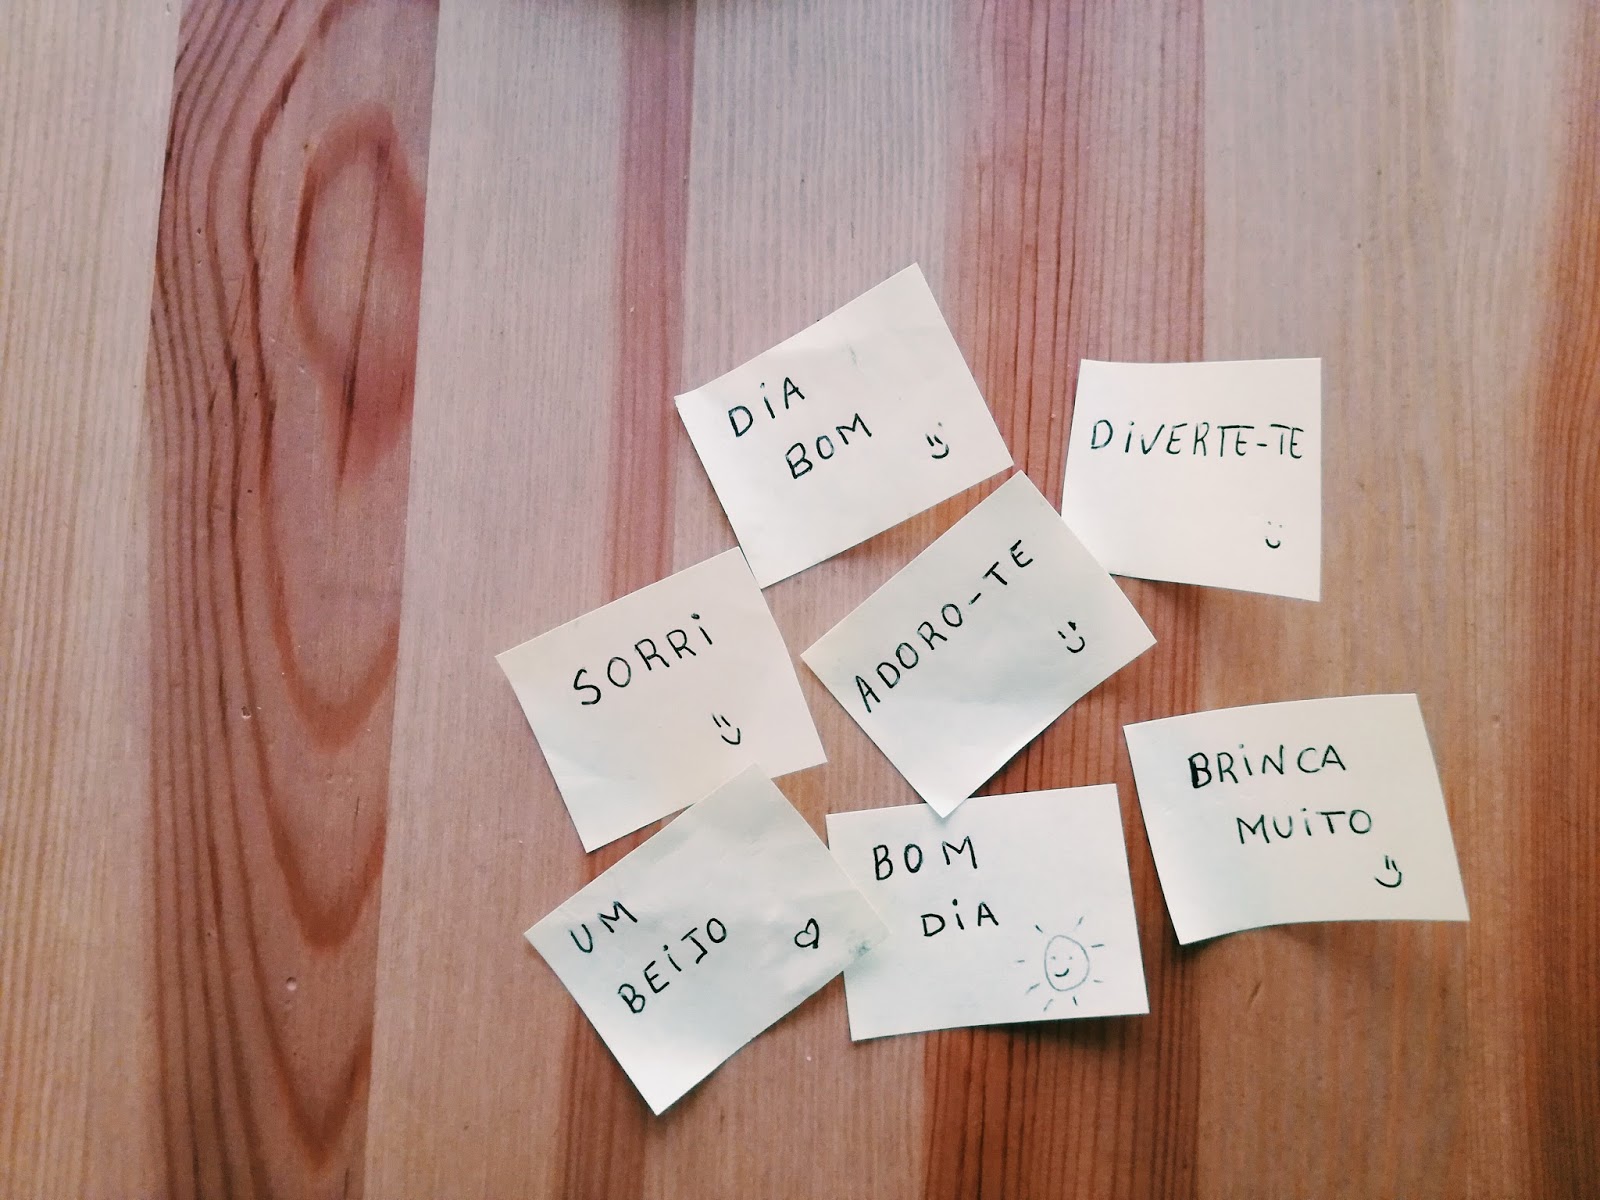 DiA
BOM
DiVERTE-TE
SORRi
ADORO-TE
BRiNCA
MUiTO
UM
BEiJO
BOM
DiA